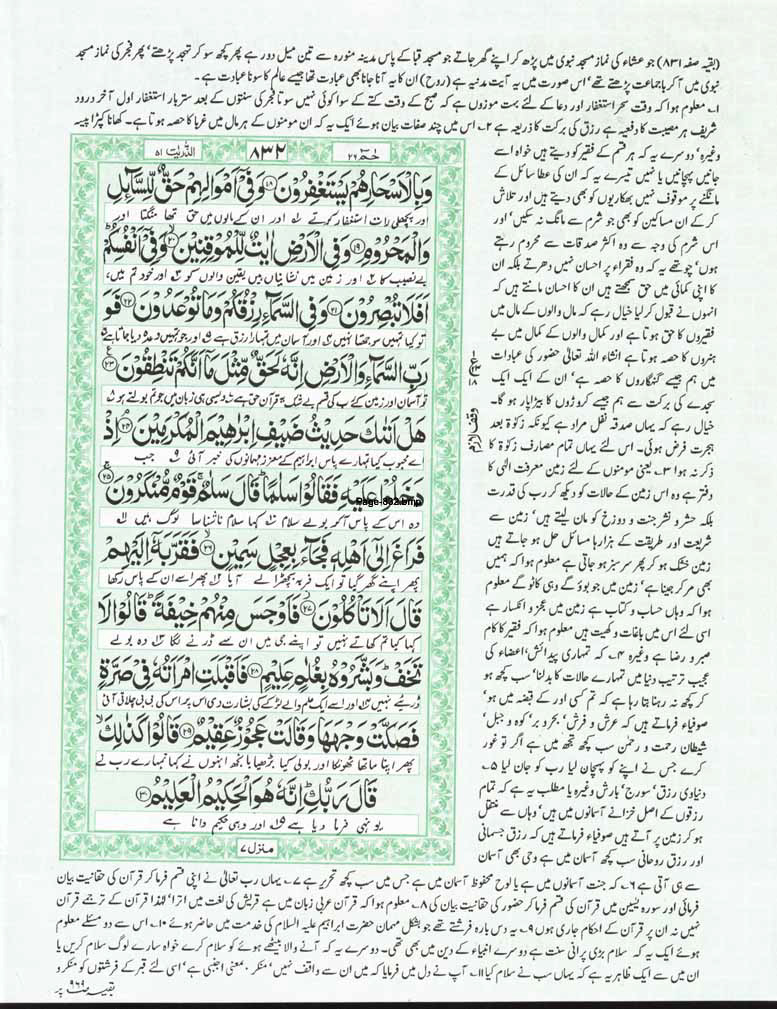 (بقیہ صفحہ ۸۳۱) جو عشاء کی نماز مسجد نبوی میں پڑھ کر اپنے گھر جاتے جو مسجد قبا کے پاس مدینہ منورہ سے تین میل دور ہے پھر کچھ سو کر تہجد پڑھتے' پھر فجر کی نماز مسجد
نبوی میں آ کر باجماعت پڑھتے تھے' اس صورت میں یہ آیت مدنیہ ہے (روح) ان کا یہ آنا جانا بھی عبادت تھا جیسے عالم کا سونا عبادت ہے۔
۱۔ معلوم ہوا کہ وقت سحر استغفار اور دعا کے لئے بہت موزوں ہے کہ صبح کے وقت کتے کے سوا کوئی نہیں سوتا فجر کی سنتوں کے بعد ستر بار استغفار اول آخر درود
شریف ہر مصیبت کا دفعیہ ہے رزق کی برکت کا ذریعہ ہے ۲۔ اس میں چند صفات بیان ہوئے ایک یہ کہ ان مومنوں کے ہر مال میں غربا کا حصہ ہوتا ہے۔ کھانا کپڑا پیسہ
الذّٰریٰت ۵۱
۸۳۲
حٰمٓ ۲۶
وَبِالْاَسْحَارِ هُمْ يَسْتَغْفِرُوْنَ ﴿۱۸﴾ وَفِيْٓ اَمْوَالِهِمْ حَقٌّ لِّلسَّآئِلِ
اور پچھلی رات استغفار کرتے ۱ اور ان کے مالوں میں حق تھا منگتا اور
وَالْمَحْرُوْمِ ﴿۱۹﴾ وَفِي الْاَرْضِ اٰيٰتٌ لِّلْمُوْقِنِيْنَ ﴿۲۰﴾ وَفِيْٓ اَنْفُسِكُمْ
بے نصیب کا ۲ اور زمین میں نشانیاں ہیں یقین والوں کو ۳ اور خود تم میں،
اَفَلَا تُبْصِرُوْنَ ﴿۲۱﴾ وَفِي السَّمَآءِ رِزْقُكُمْ وَمَا تُوْعَدُوْنَ ﴿۲۲﴾ فَوَ
تو کیا تمہیں سوجھتا نہیں ۴ اور آسمان میں تمہارا رزق ہے ۵ اور جو تمہیں وعدہ دیا جاتا ہے ۶
رَبِّ السَّمَآءِ وَالْاَرْضِ اِنَّهٗ لَحَقٌّ مِّثْلَ مَآ اَنَّكُمْ تَنْطِقُوْنَ ﴿۲۳﴾
تو آسمان اور زمین کے رب کی قسم بے شک یہ قرآن حق ہے ۷ ویسی ہی زبان میں جو تم بولتے ہو ۸
هَلْ اَتٰىكَ حَدِيْثُ ضَيْفِ اِبْرٰهِيْمَ الْمُكْرَمِيْنَ ﴿۲۴﴾ اِذْ
اے محبوب کیا تمہارے پاس ابراہیم کے معزز مہمانوں کی خبر آئی ۹ جب
دَخَلُوْا عَلَيْهِ فَقَالُوْا سَلٰمًا ۭ قَالَ سَلٰمٌ ۚ قَوْمٌ مُّنْكَرُوْنَ ﴿۲۵﴾
Page-832.bmp
وہ اس کے پاس آ کر بولے سلام ۱۰ کہا سلام ناشناسا لوگ ہیں ۱۱
فَرَاغَ اِلٰٓى اَهْلِهٖ فَجَآءَ بِعِجْلٍ سَمِيْنٍ ﴿۲۶﴾ فَقَرَّبَهٗٓ اِلَيْهِمْ
پھر اپنے گھر گیا تو ایک فربہ بچھڑا لے آیا پھر اسے ان کے پاس رکھا
قَالَ اَلَا تَاْكُلُوْنَ ﴿۲۷﴾ فَاَوْجَسَ مِنْهُمْ خِيْفَةً ۭ قَالُوْا لَا
کہا کیا تم کھاتے نہیں تو اپنے جی میں ان سے ڈرنے لگا وہ بولے
تَخَفْ ۭ وَبَشَّرُوْهُ بِغُلٰمٍ عَلِيْمٍ ﴿۲۸﴾ فَاَقْبَلَتِ امْرَاَتُهٗ فِيْ صَرَّةٍ
ڈریئے نہیں اور اسے ایک علم والے لڑکے کی بشارت دی اس پر اس کی بی بی چلاتی آئی
فَصَكَّتْ وَجْهَهَا وَقَالَتْ عَجُوْزٌ عَقِيْمٌ ﴿۲۹﴾ قَالُوْا كَذٰلِكِ ۙ
پھر اپنا ماتھا ٹھونکا اور بولی کیا بڑھیا بانجھ انہوں نے کہا تمہارے رب نے
قَالَ رَبُّكِ ۭ اِنَّهٗ هُوَ الْحَكِيْمُ الْعَلِيْمُ ﴿۳۰﴾
یونہی فرما دیا ہے اور وہی حکیم دانا ہے
منزل ۷
وقف لازم
وغیرہ' دوسرے یہ کہ ہر قسم کے فقیر کو دیتے ہیں خواہ اسے
جانیں پہچانیں یا نہیں تیسرے یہ کہ ان کی عطا سائل کے
مانگنے پر موقوف نہیں بھکاریوں کو بھی دیتے ہیں اور تلاش
کر کے ان مساکین کو بھی جو شرم سے مانگ نہ سکیں' اور
اس شرم کی وجہ سے وہ اکثر صدقات سے محروم رہتے
ہوں' چوتھے یہ کہ وہ فقراء پر احسان نہیں دھرتے بلکہ ان
کا اپنی کمائی میں حق سمجھتے ہیں ان کا احسان مانتے ہیں کہ
انہوں نے قبول کر لیا خیال رہے کہ مال والوں کے مال میں
فقیروں کا حق ہوتا ہے اور کمال والوں کے کمال میں بے
ہنروں کا حصہ ہوتا ہے انشاء اللہ تعالیٰ حضور کی عبادات
میں ہم جیسے گنہگاروں کا حصہ ہے' ان کے ایک ایک
سجدے کی برکت سے ہم جیسے کروڑوں کا بیڑا پار ہو گا۔
خیال رہے کہ یہاں صدقہ نفل مراد ہے کیونکہ زکوٰۃ بعد
ہجرت فرض ہوئی۔ اس لئے یہاں تمام مصارف زکوٰۃ کا
ذکر نہ ہوا ۳۔ یعنی مومنوں کے لئے زمین معرفت الٰہی کا
دفتر ہے وہ اس زمین کے حالات کو دیکھ کر رب کی قدرت
بلکہ حشر و نشر جنت و دوزخ کو مان لیتے ہیں' زمین سے
شریعت اور طریقت کے ہزارہا مسائل حل ہو جاتے ہیں
زمین خشک ہو کر پھر سرسبز ہو جاتی ہے معلوم ہوا کہ ہمیں
بھی مر کر جینا ہے' زمین میں جو بوؤ گے وہی کاٹو گے معلوم
ہوا کہ وہاں حساب و کتاب ہے زمین میں عجز و انکسار ہے
اسی لئے اس میں باغات و کھیت ہیں معلوم ہوا کہ فقیر کا کام
صبر و رضا ہے وغیرہ ۴۔ کہ تمہاری پیدائش' اعضاء کی
عجیب ترتیب دنیا میں تمہارے حالات کا بدلنا' سب کچھ ہو
کر کچھ نہ رہنا بتا رہا ہے کہ تم کسی اور کے قبضہ میں ہو'
صوفیاء فرماتے ہیں کہ عرش و فرش' بحر و بر' کوہ و جبل'
شیطان رحمت و رحمٰن سب کچھ تجھ میں ہے اگر تو غور
کرے جس نے اپنے کو پہچان لیا رب کو جان لیا ۵۔
دنیاوی رزق' سورج' بارش وغیرہ یا مطلب یہ ہے کہ تمام
رزقوں کے اصل خزانے آسمانوں میں ہیں' وہاں سے منتقل
ہو کر زمین پر آتے ہیں صوفیاء فرماتے ہیں کہ رزق جسمانی
اور رزق روحانی سب کچھ آسمان میں ہے وحی بھی آسمان
سے ہی آتی ہے ۶۔ کہ جنت آسمانوں میں ہے یا لوح محفوظ آسمان میں ہے جس میں سب کچھ تحریر ہے ۷۔ یہاں رب تعالیٰ نے اپنی قسم فرما کر قرآن کی حقانیت بیان
فرمائی اور سورہ یٰسین میں قرآن کی قسم فرما کر حضور کی حقانیت بیان کی ۸۔ معلوم ہوا کہ قرآن عربی زبان میں ہے قریش کی لغت میں اترا' لہٰذا قرآن کے ترجمے قرآن
نہیں نہ ان پر قرآن کے احکام جاری ہوں ۹۔ یہ دس بارہ فرشتے تھے جو بشکل مہمان حضرت ابراہیم علیہ السلام کی خدمت میں حاضر ہوئے ۱۰۔ اس سے دو مسئلے معلوم
ہوئے ایک یہ کہ سلام بڑی پرانی سنت ہے دوسرے انبیاء کے دین میں بھی تھی۔ دوسرے یہ کہ آنے والا بیٹھے ہوئے کو سلام کرے خواہ سارے لوگ سلام کریں یا
ان میں سے ایک ظاہر یہ ہے کہ یہاں سب نے سلام کیا ۱۱۔ آپ نے دل میں فرمایا کہ میں ان سے واقف نہیں' منکر ، معنی اجنبی ہے' اسی لئے قبر کے فرشتوں کو منکر و
بقیہ صفحہ ۹۶۹ پر